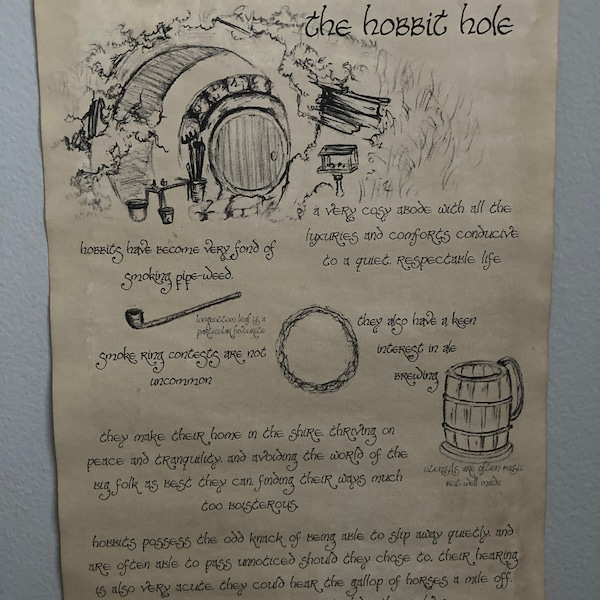 the hobbit hole
a very cosy abode with all the
luxuries and comforts conducive
to a quiet, respectable life
hobbits have become very fond of
smoking pipe-weed.
longbottom leaf is a
particular favourite
smoke ring contests are not
uncommon
they also have a keen
interest in ale
brewing
utensils are often rustic
but well made
they make their home in the shire, thriving on
peace and tranquility, and avoiding the world of the
big folk as best they can, finding their ways much
too boisterous.
hobbits possess the odd knack of being able to slip away quietly, and
are often able to pass unnoticed should they chose to. their hearing
is also very acute. they could hear the gallop of horses a mile off.